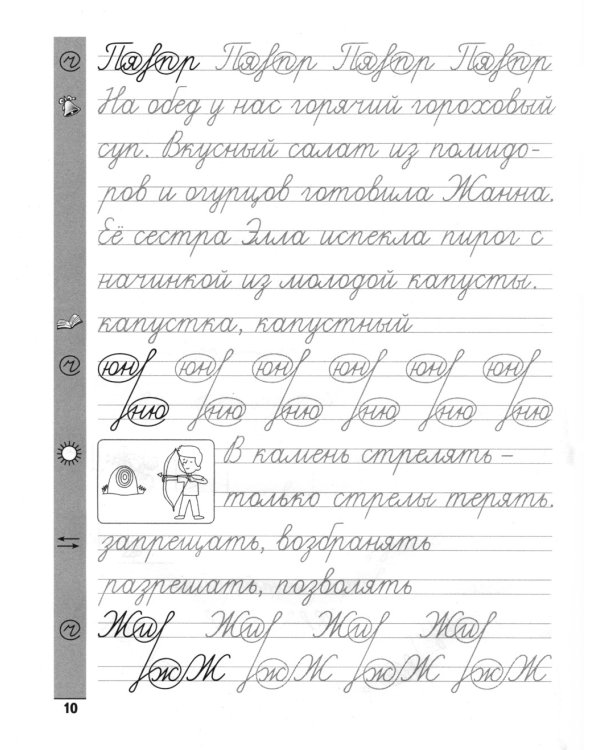 На обед у нас горячий гороховый
суп. Вкусный салат из помидо-
ров и огурцов готовила Жанна.
Её сестра Элла испекла пирог с
начинкой из молодой капусты.
капустка, капустный
юн юн юн юн юн юн
ню ню ню ню ню ню
В камень стрелять –
только стрелы терять.
запрещать, возбранять
разрешать, позволять
Жи Жи Жи Жи
жЖ жЖ жЖ жЖ
10